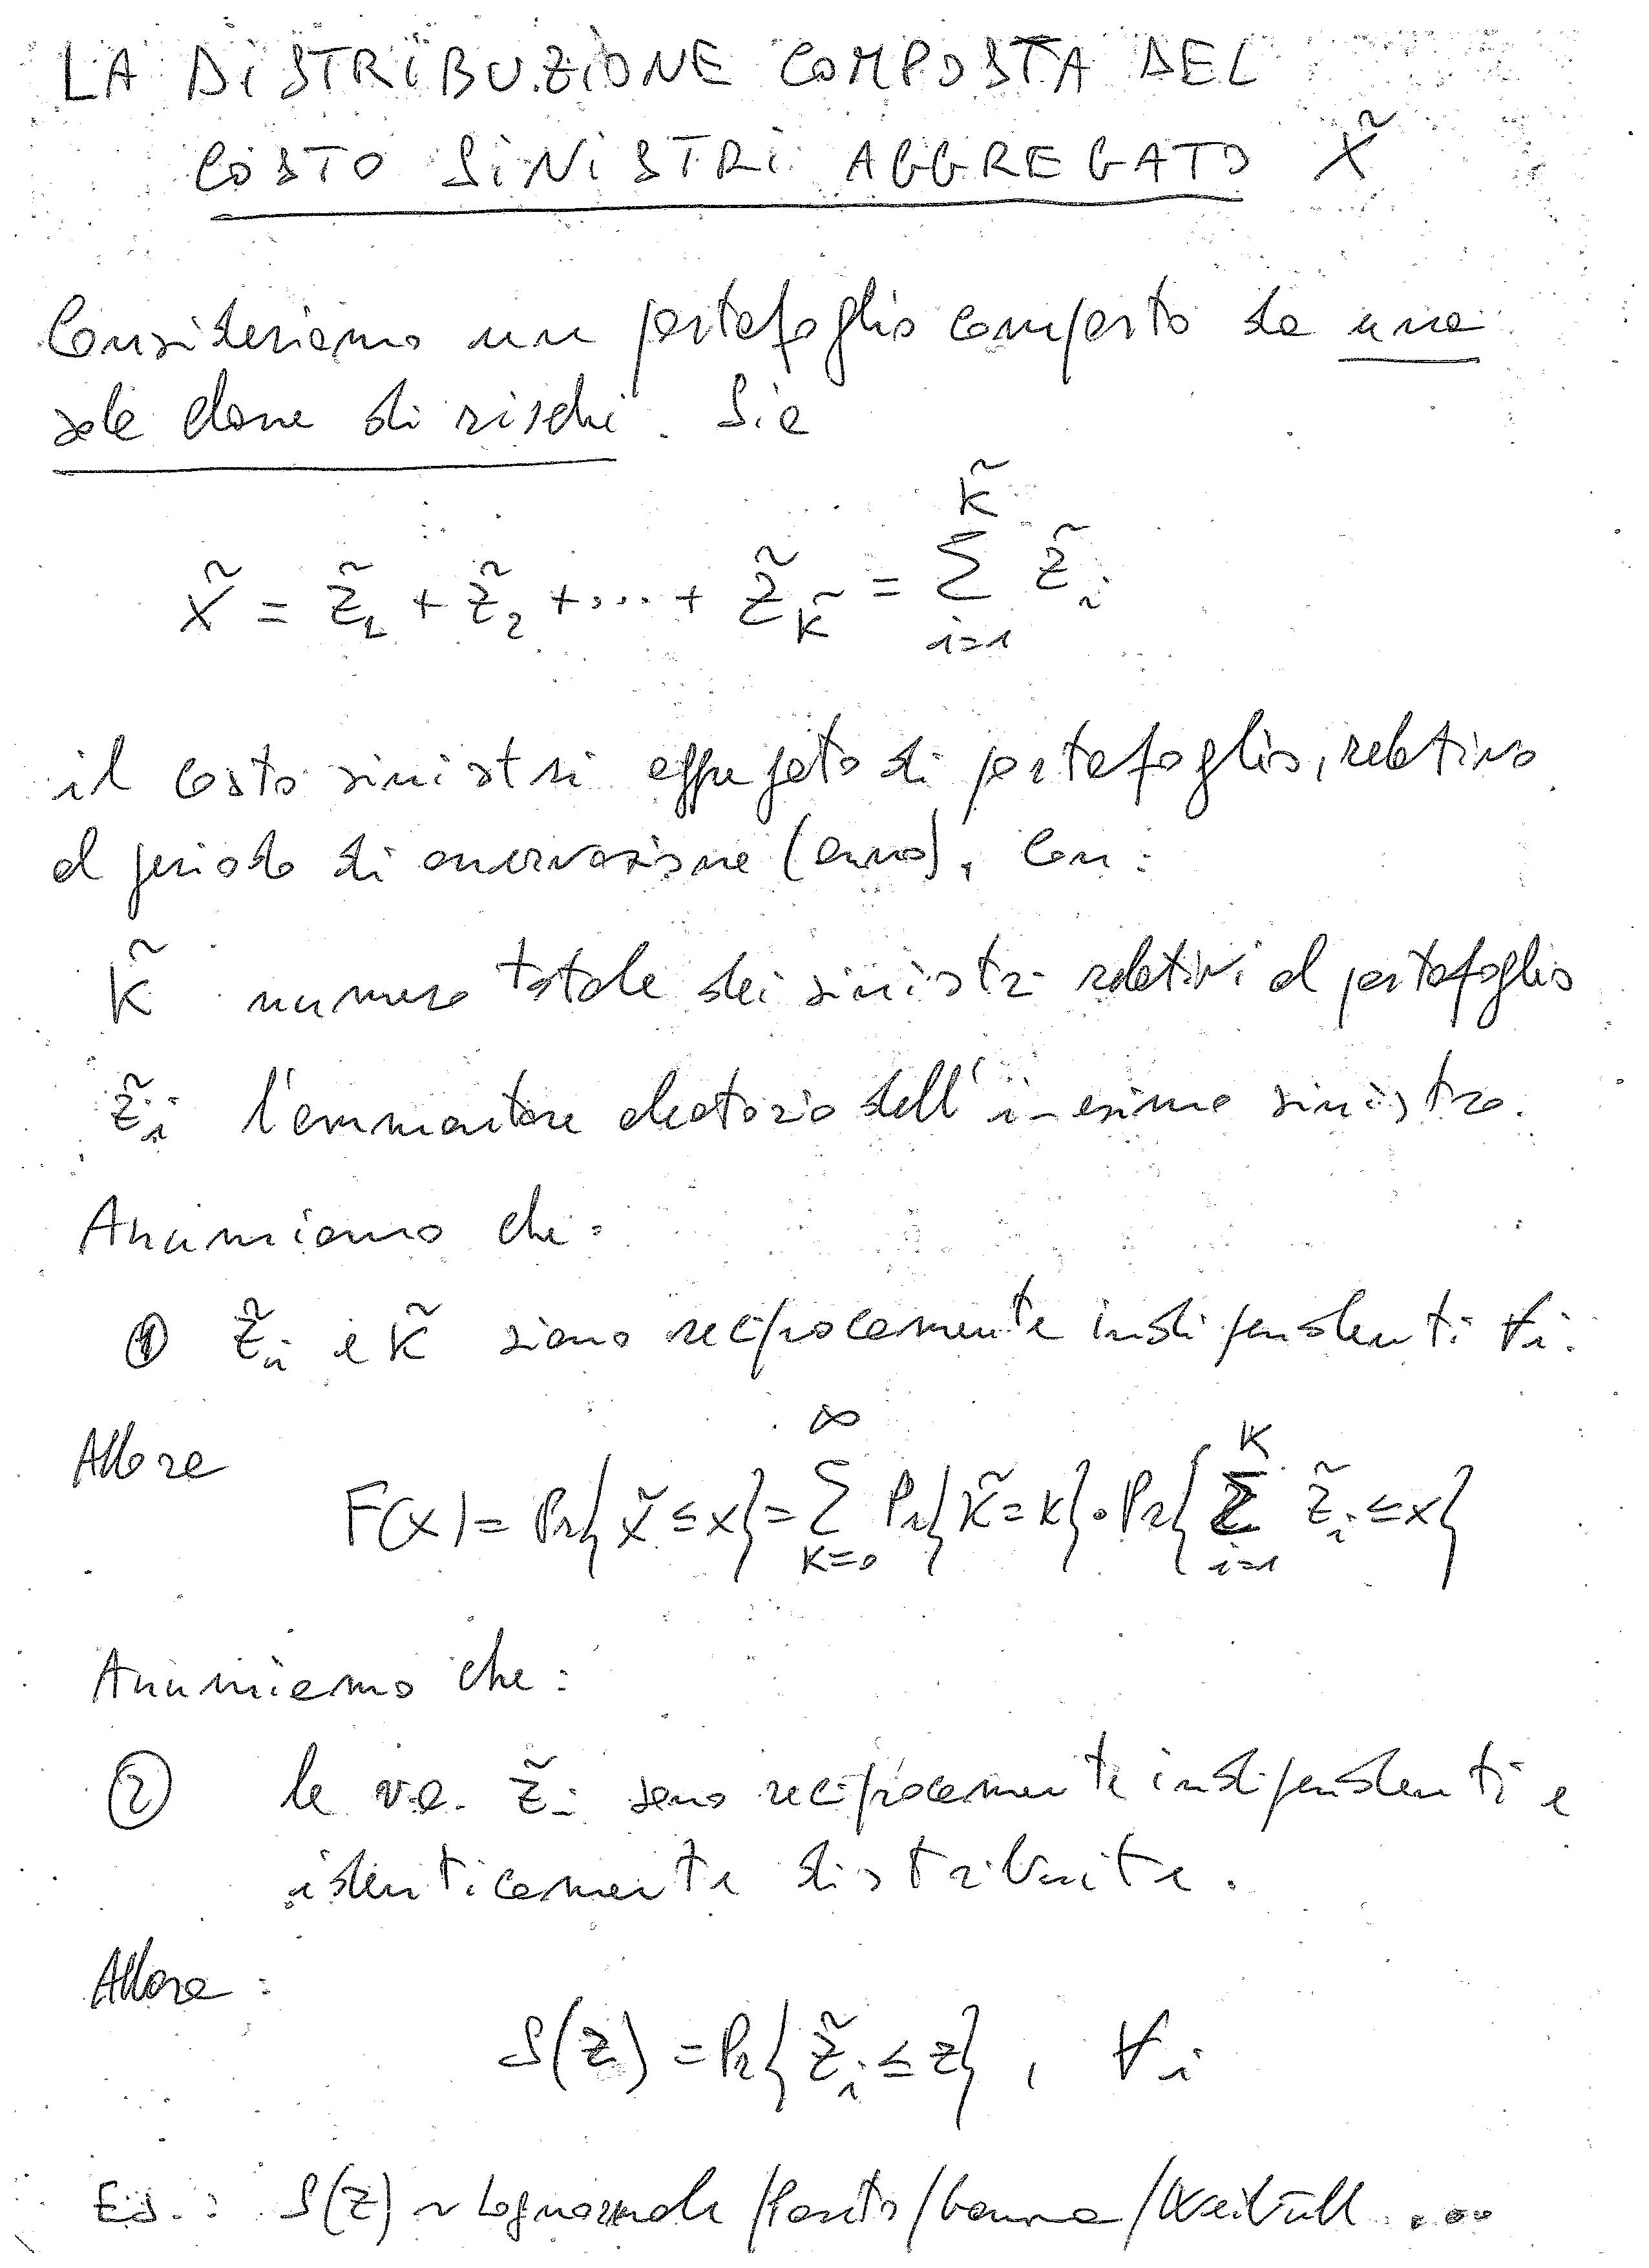 LA DISTRIBUZIONE COMPOSTA DEL
COSTO SINISTRI AGGREGATO X̃
Consideriamo un portafoglio composto da una
sola classe di rischi. Sia
X̃ = Z̃₁ + Z̃₂ + ... + Z̃_K̃ = Σ_{i=1}^{K̃} Z̃ᵢ
il costo sinistri aggregato di portafoglio, relativo
al periodo di osservazione (anno), con:
K̃ numero totale dei sinistri relativi al portafoglio
Z̃ᵢ l'ammontare aleatorio dell'i-esimo sinistro.
Assumiamo che:
① Z̃ᵢ e K̃ siano reciprocamente indipendenti ∀i.
Allora
F(x) = Pr{X̃ ≤ x} = Σ_{K=0}^{∞} Pr{K̃ = K} · Pr{Σ_{i=1}^{K} Z̃ᵢ ≤ x}
Assumiamo che:
② le v.a. Z̃ᵢ sono reciprocamente indipendenti e
identicamente distribuite.
Allora:
S(Z) = Pr{Z̃ᵢ ≤ Z}, ∀i
Es.: S(Z) ~ Lognormale/Pareto/Gamma/Weibull ...